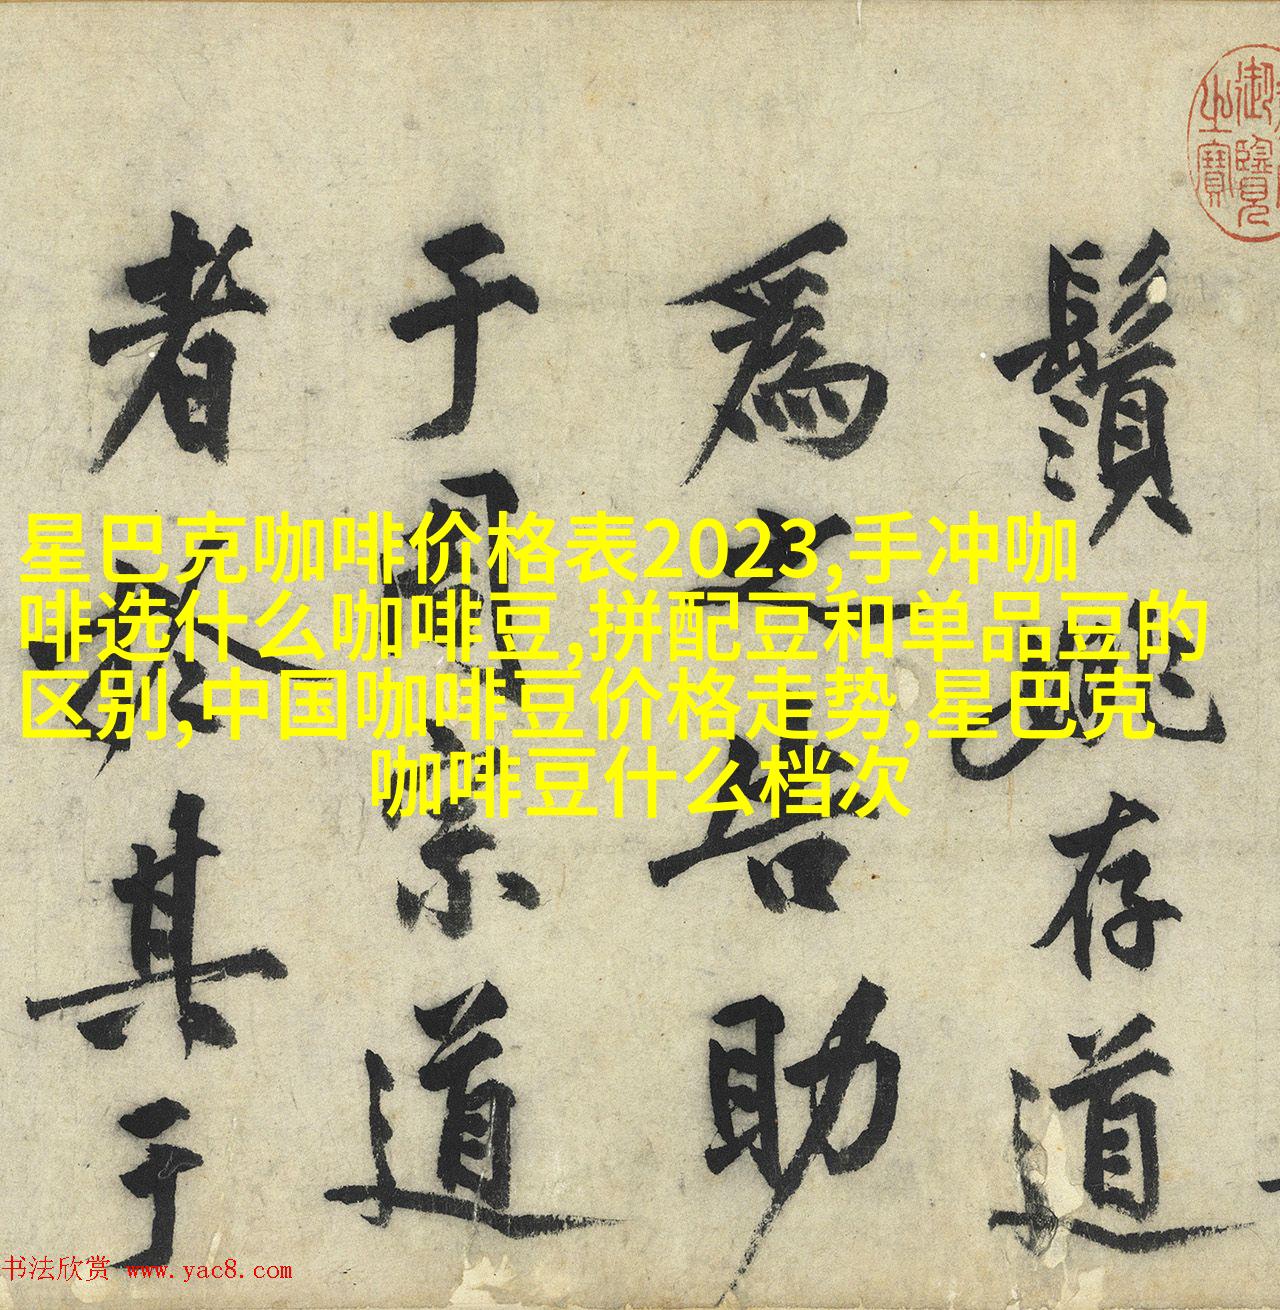 御覽
之寶
鬚存道
為告助
于周宗道
者於其于
星巴克咖啡价格表2023,手冲咖
啡选什么咖啡豆,拼配豆和单品豆的
区别,中国咖啡豆价格走势,星巴克
咖啡豆什么档次
书法欣赏 www.yac8.com